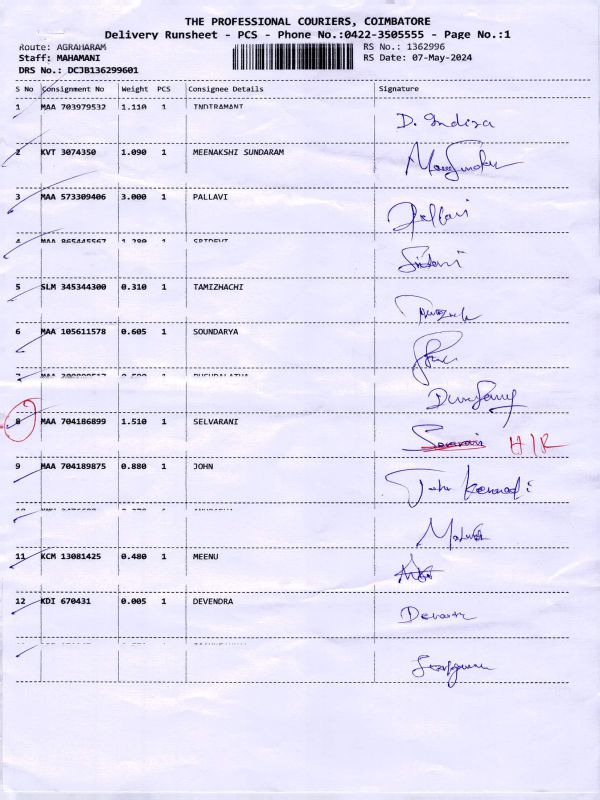 THE PROFESSIONAL COURIERS, COIMBATORE
Delivery Runsheet - PCS - Phone No.:0422-3505555 - Page No.:1
Route: AGRAHARAM RS No.: 1362996
Staff: MAHAMANI RS Date: 07-May-2024
DRS No.: DCJB136299601
S No Consignment No Weight PCS Consignee Details Signature
1 MAA 703979532 1.110 1 INDIRAMANI
D. Indira
2 KVT 3074350 1.090 1 MEENAKSHI SUNDARAM
3 MAA 573309406 3.000 1 PALLAVI
Pallavi
4 MAA 865445567 1.280 1 SRIDEVI
Sridevi
5 SLM 345344300 0.310 1 TAMIZHACHI
6 MAA 105611578 0.605 1 SOUNDARYA
7 MAA
8 MAA 704186899 1.510 1 SELVARANI
H/R
9 MAA 704189875 0.880 1 JOHN
John Kennadi
11 KCM 13081425 0.480 1 MEENU
12 KDI 670431 0.005 1 DEVENDRA